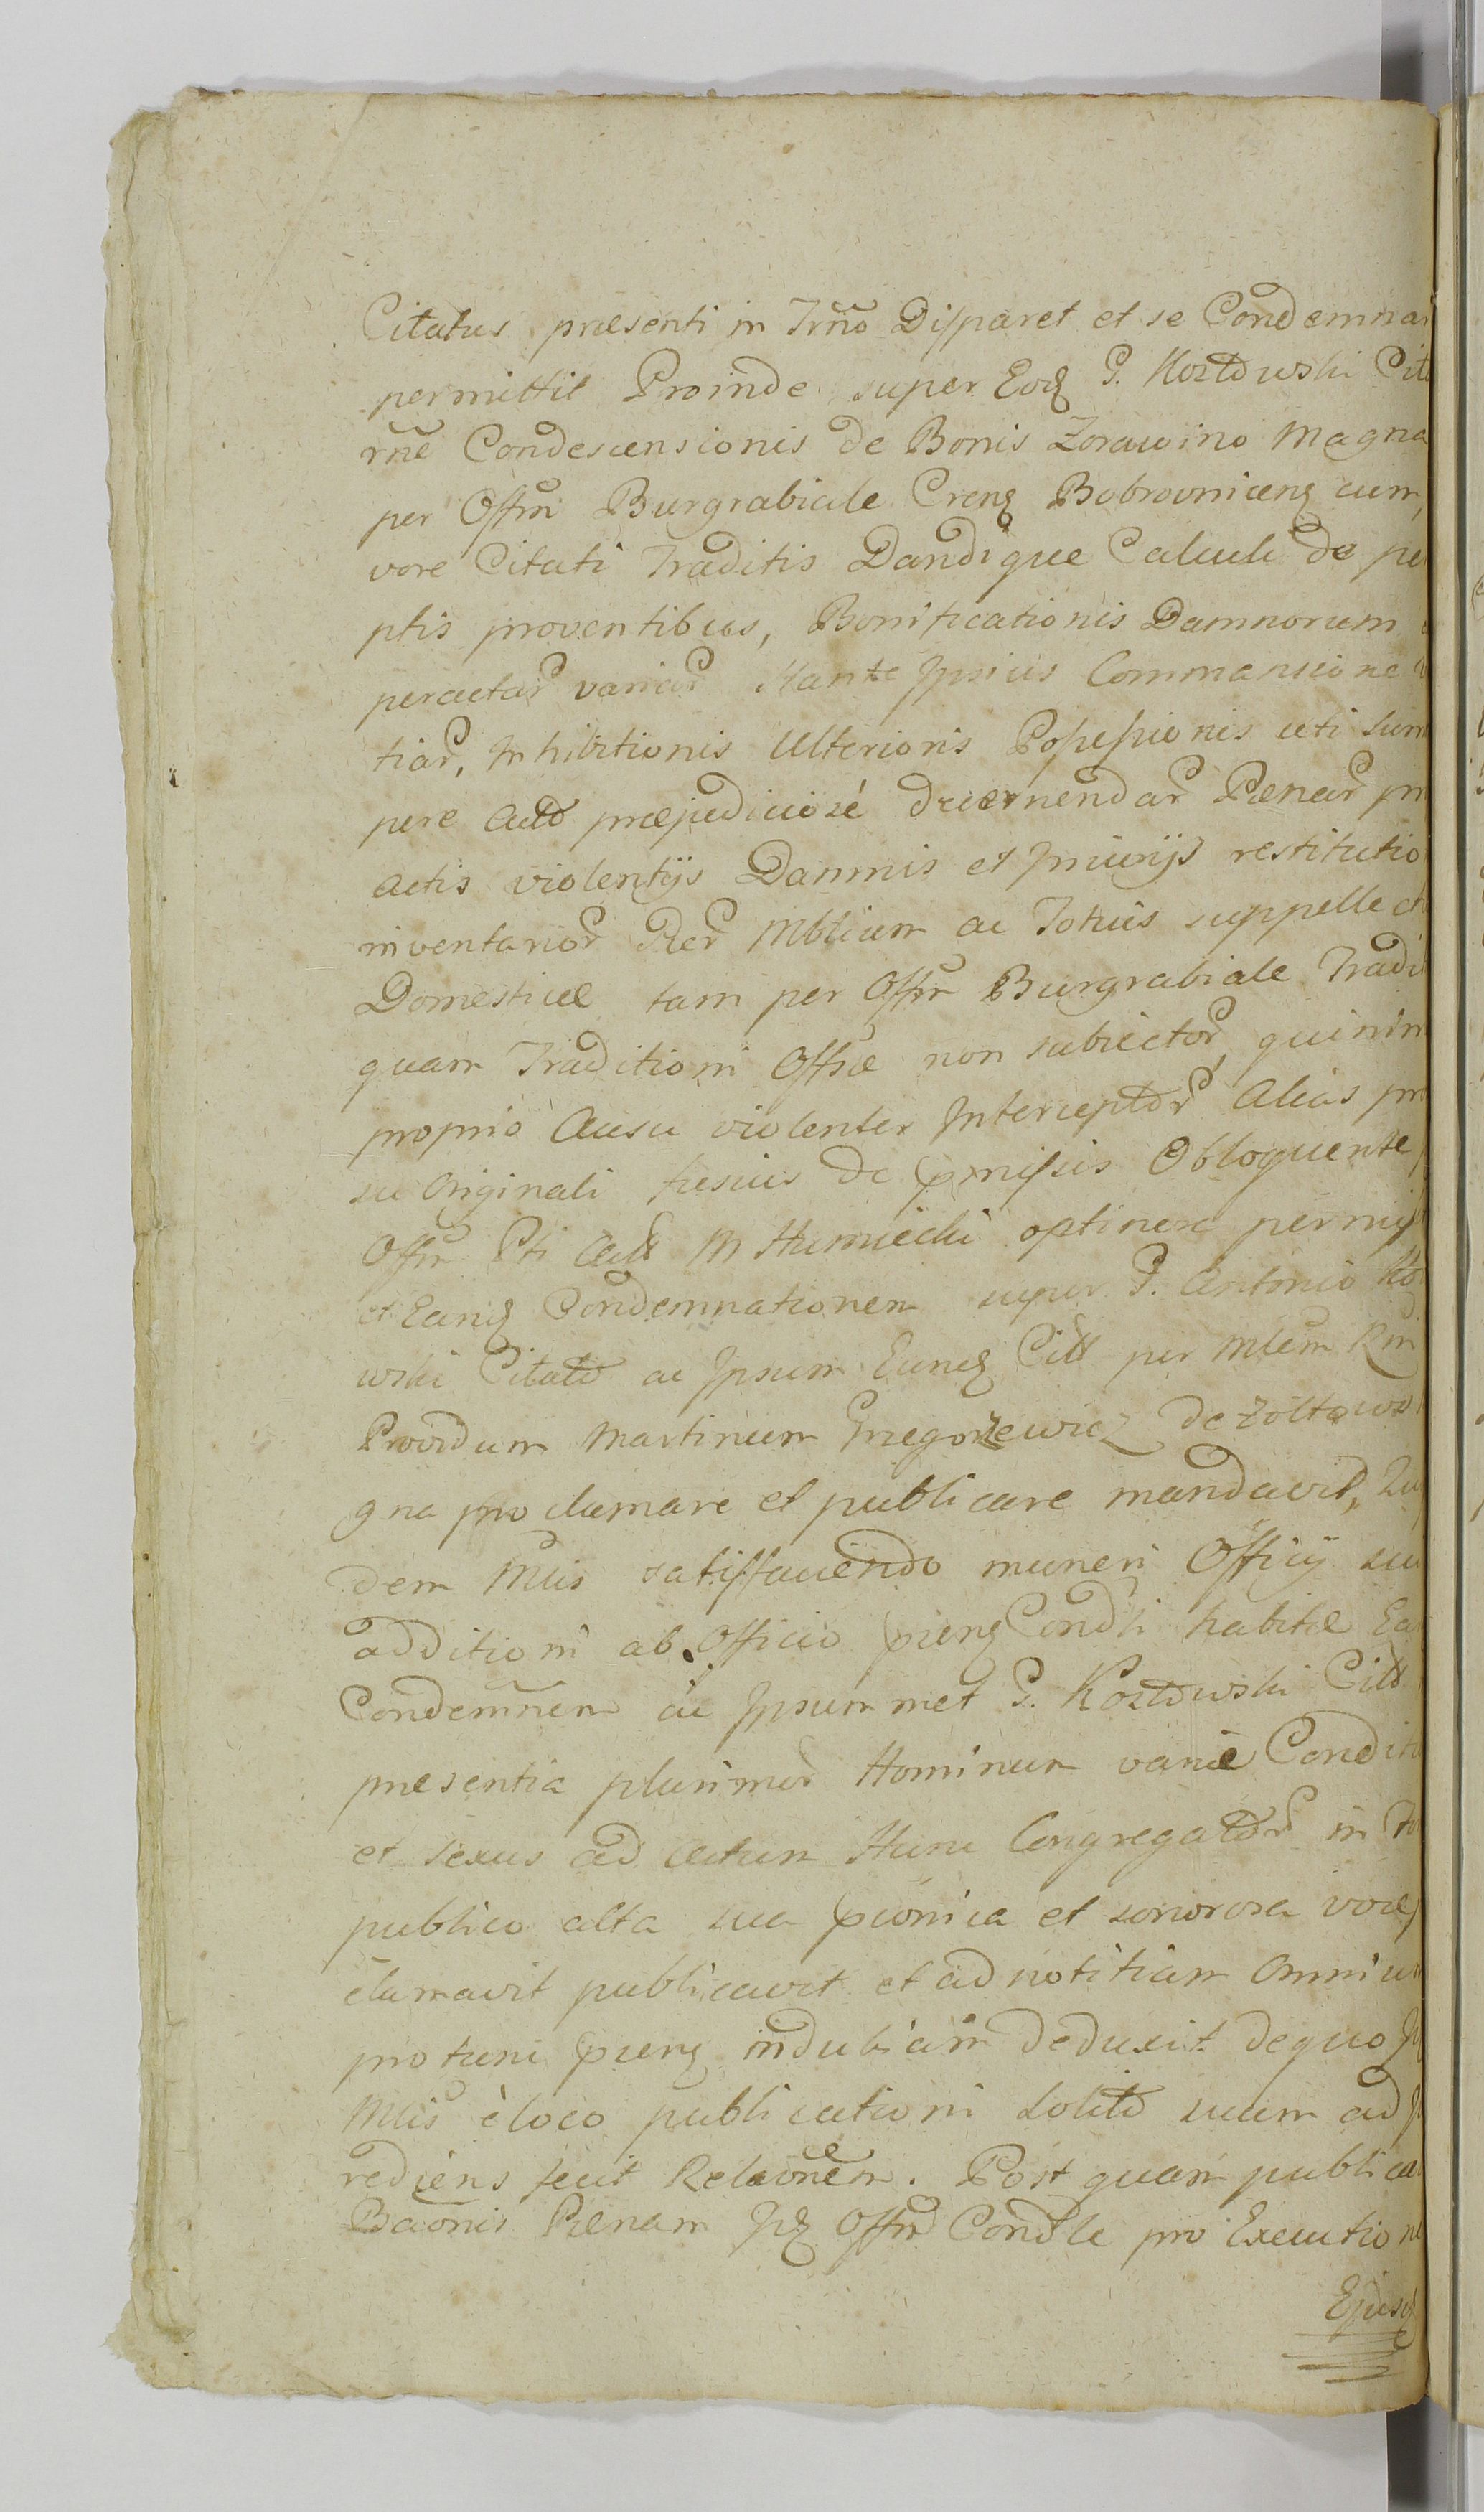 Citatus præsenti in Trno Disparet et se Condemnar
permittit Proinde super Eodz G. Kozłowski Cit
rne Condescensionis de Bonis Zorawino Magna
per Offm Burgrabiale Crenz Bobrovnicenz cum
vore Citati Traditis Dandique Calculi de pe
ptis proventibus, Bonificationis Damnorum
peractar variar stante Ipsius Commansione
tiar, Inhibitionis Ulterioris Possessionis uti sum
pere Acto præjudiciosé decernendar Pænar pr
actis violentijs Damnis et Iniurijs restitutio
inventarior Rer Mblium ac Totius suppellect
Domesticæ tam per Offm Burgrabiale Tradi
quam Traditioni Offsæ non subiector, quinim
proprio Ausu violenter Interceptor Alias pr
su Originali fusius de pmissis Obloquente
Offm Pti Castr M Humiecki optinere permis
et Eandz Condemnationem super G. Antonio Ko
wski Citato ac Ipsum Eundz Citt per Mlem Rm
Providum Martinum Grzegorzewicz de Zółtows
gna proclamare et publicare mandavit, Qu
dem Mlis satisfaciendo muneri Officij su
additioni ab Officio prenz Condli habitæ Ea
Condemnnem ac Ipsummet G. Kozłowski Citt
presentia plurimor Hominum variæ Conditio
et sexus ad actum Hunc Congregator in
publico alta sua pconica et sonorosa voce
clamavit publicavit et ad notitiam Omnium
protunc prenz indubiam deduxit de quo
Mlis è loco publicationi solito suum ad
rediens fecit Relaonem. Post quam publica
Baonis Pænam Idz Offm Condle pro Executione
Ejusd